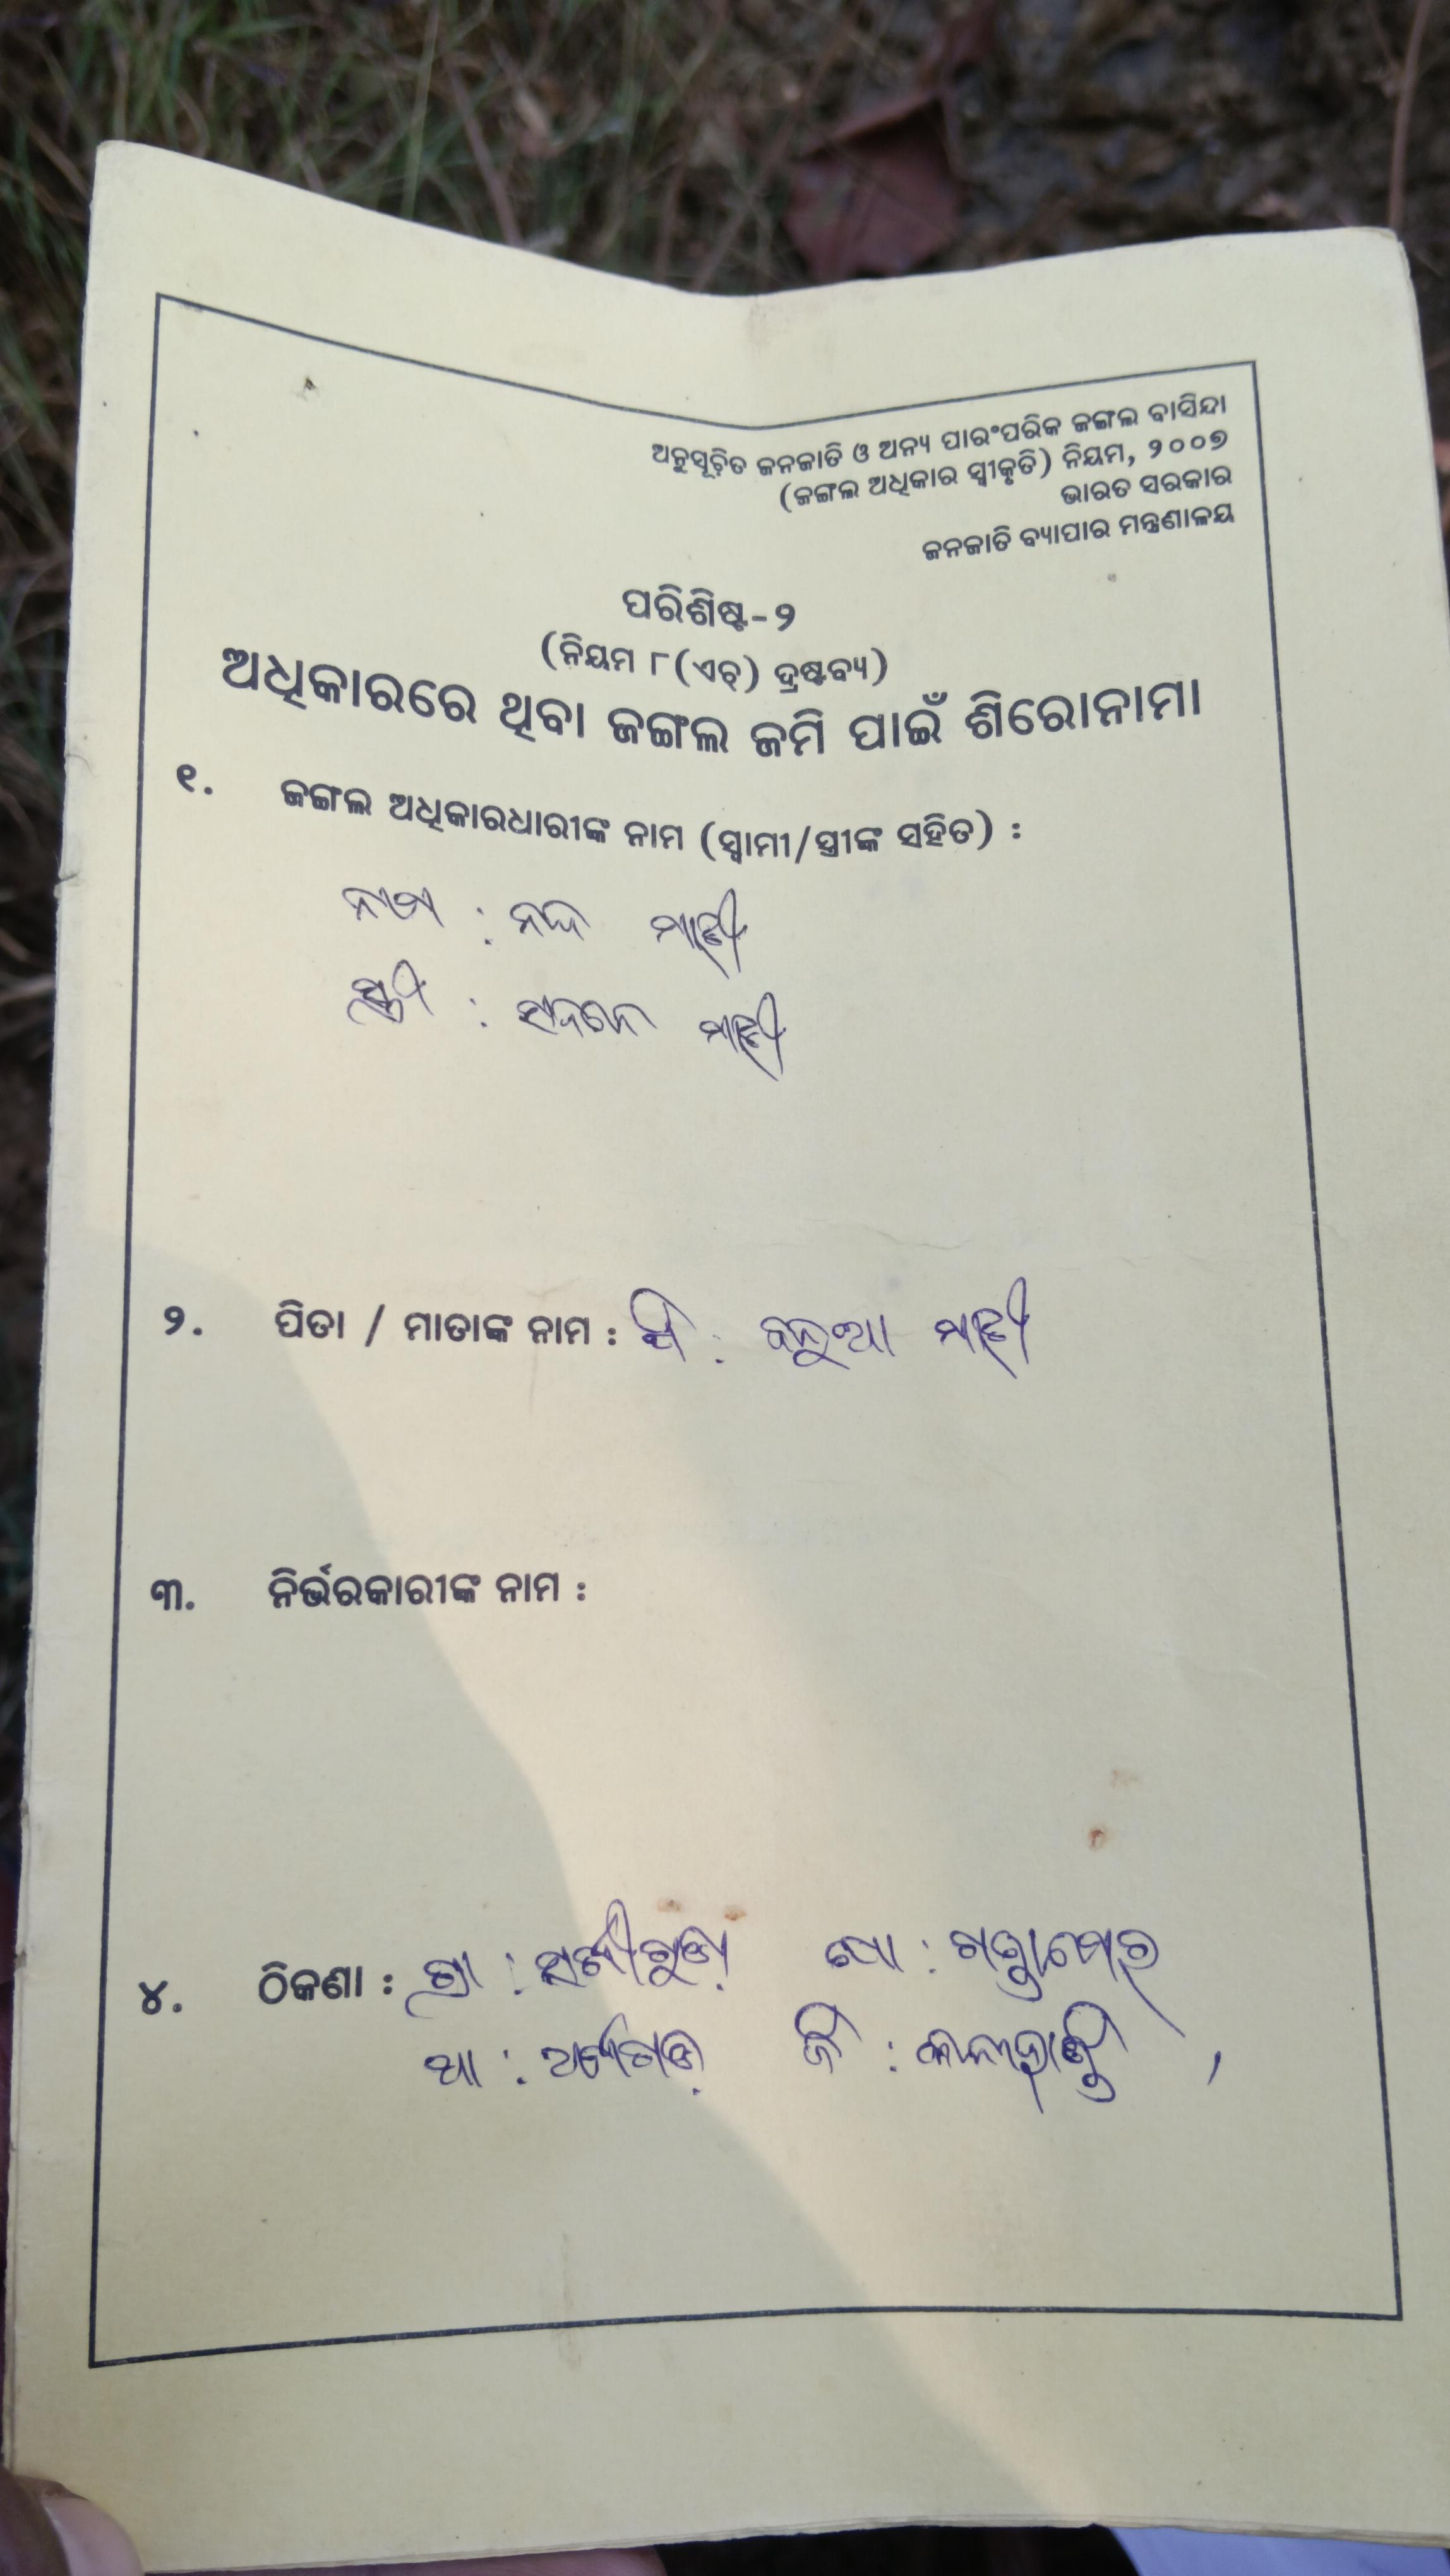 ଅନୁସୂଚିତ ଜନଜାତି ଓ ଅନ୍ୟ ପାରଂପରିକ ଜଙ୍ଗଲ ବାସିନ୍ଦା
(ଜଙ୍ଗଲ ଅଧିକାର ସ୍ୱୀକୃତି) ନିୟମ, ୨୦୦୭
ଭାରତ ସରକାର
ଜନଜାତି ବ୍ୟାପାର ମନ୍ତ୍ରଣାଳୟ
ପରିଶିଷ୍ଟ-୨
(ନିୟମ ୮(ଏଚ୍) ଦ୍ରଷ୍ଟବ୍ୟ)
ଅଧିକାରରେ ଥିବା ଜଙ୍ଗଲ ଜମି ପାଇଁ ଶିରୋନାମା
୧. ଜଙ୍ଗଲ ଅଧିକାରଧାରୀଙ୍କ ନାମ (ସ୍ୱାମୀ/ସ୍ତ୍ରୀଙ୍କ ସହିତ) :
ନାମ : ନନ୍ଦ ମାଝୀ
ସ୍ତ୍ରୀ : ମାଝୀ
୨. ପିତା / ମାତାଙ୍କ ନାମ : ପି : ମାଝୀ
୩. ନିର୍ଭରକାରୀଙ୍କ ନାମ :
୪. ଠିକଣା : ଗ୍ରା : ପୋ :
ଥା : ଜି : କଳାହାଣ୍ଡି